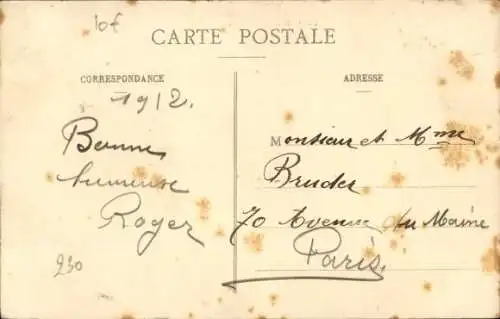 10f
CARTE POSTALE
CORRESPONDANCE
ADRESSE
1912.
Bonne
heureuse
Roger
Monsieur et Mme
Bruder
70 Avenue du Maine
Paris.
230